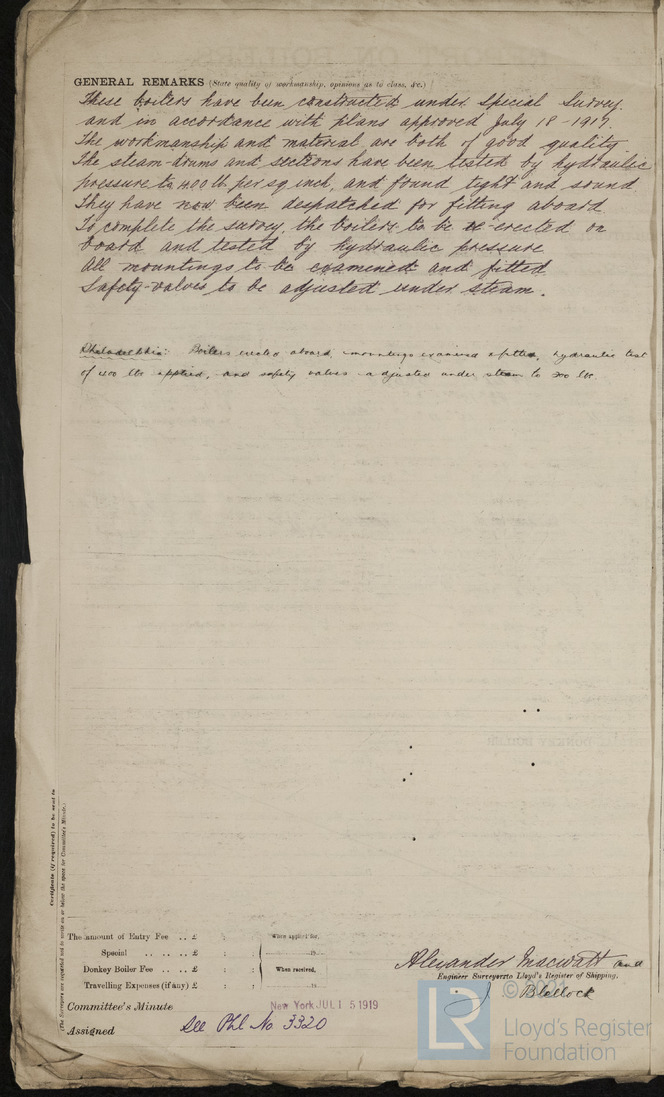 GENERAL REMARKS (State quality of workmanship, opinions as to class, &c.)
These boilers have been constructed under Special Survey.
and in accordance with plans approved July 18-1917.
The workmanship and material are both of good quality.
The steam-drums and sections have been tested by hydraulic
pressure to 400 lb per sq inch, and found tight and sound
They have now been despatched for fitting aboard
To complete the survey, the boilers to be re-erected on
board and tested by hydraulic pressure
All mountings to be examined and fitted
Safety-valves to be adjusted under steam.
Philadelphia: Boilers erected aboard, mountings examined & fitted, hydraulic test
of 400 lbs applied, and safety valves adjusted under steam to 200 lbs.
Certificate (if required) to be sent to
(The Surveyors are requested not to write on or below the space for Committee's Minute.)
The amount of Entry Fee .. £ : :
Special .. .. £ : :
Donkey Boiler Fee .. .. £ : :
Travelling Expenses (if any) £ : :
When applied for,
19
When received,
19
Alexander Macwatt and
Engineer Surveyors to Lloyd's Register of Shipping.
J Blellock
Committee's Minute
New York JUL 15 1919
Assigned
See Phl No 3320
©
LR
Lloyd's Register
Foundation